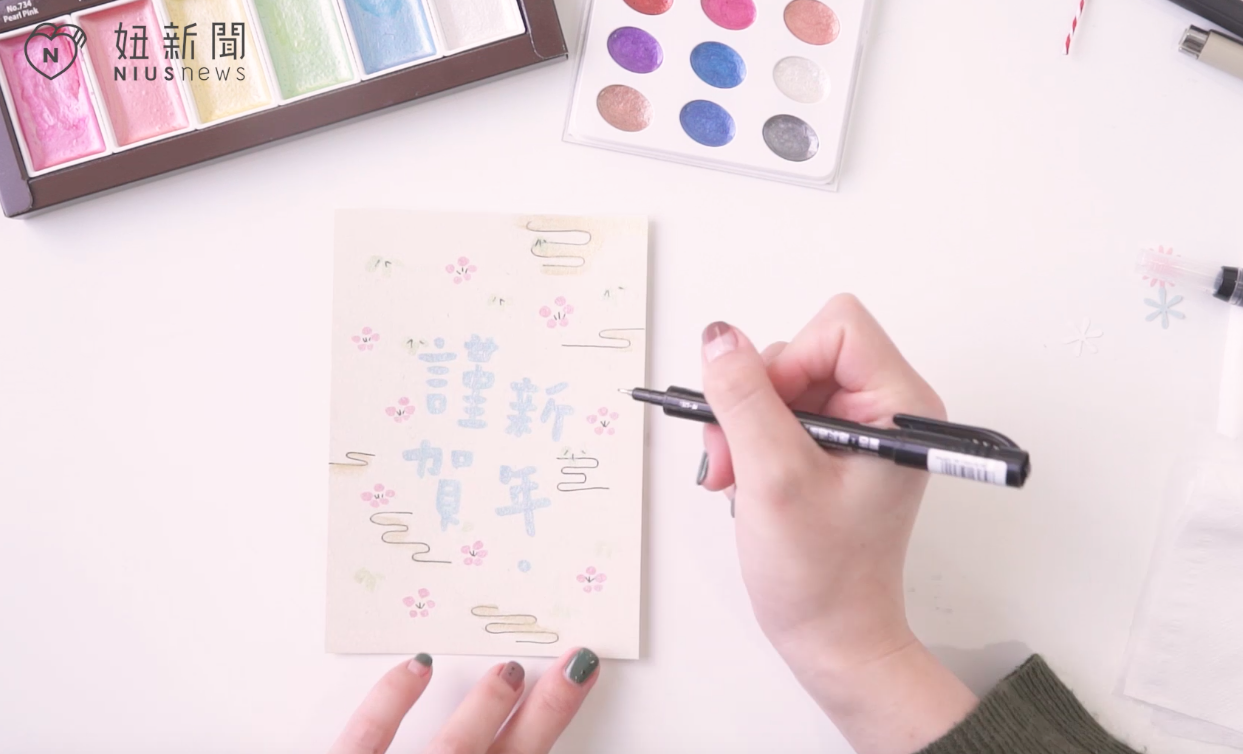 No.734
Pearl Pink
妞新聞
NIUSnews
謹賀
新年